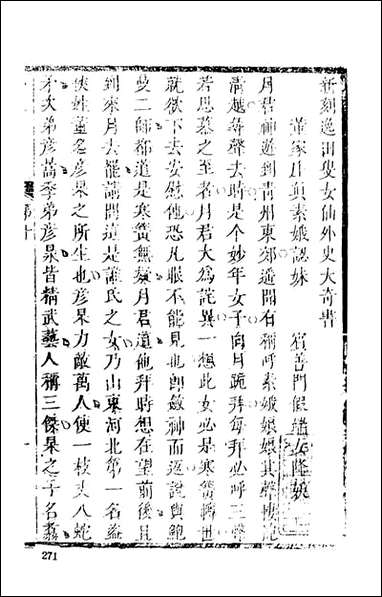 新刻逸田叟女仙外史大奇書
董家庄真素娥認妹 賓善門假端女降娘
月君神遊到青州東郊適聞有稱呼素娥娘娘其聲悽惋
清越尋聲去時是個妙年女子向月跪拜每拜必呼三聲
若思慕之至者月君大爲詫異一想此女必是寒簧轉世
就欲下去安慰他恐凡眼不能見也卽斂神而返說與鮑
曼二師都道是寒簧無疑月君道他拜時想在望前後且
到來月去罷請問這是誰氏之女乃山東河北第一名盜
俠姓董名彥杲之所生也彥杲力敵萬人使一枝丈八蛇
矛次弟彥暠季弟彥杲皆精武藝人稱三傑杲之子名翥
第十
271